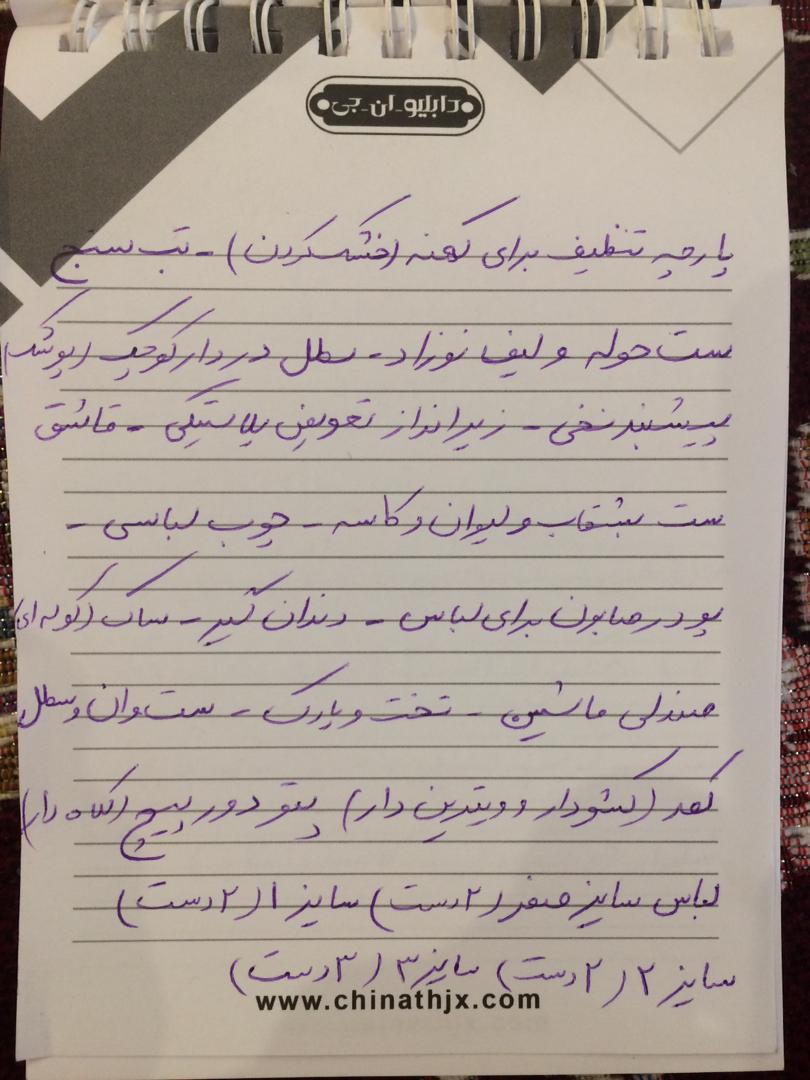 دابلیو-ان-جی
پارچه تنظیف برای کهنه (خشک کردن) - تب سنج
ست حوله و لیف نوزاد - سطل دردار کوچک (پوشک)
پیشبند نخی - زیرانداز تعویض پلاستیکی - قاشق
ست بشقاب و لیوان و کاسه - چوب لباسی -
پودر صابون برای لباس - دندان گیر - ساک (کوله ای)
صندلی ماشین - تخت و پارک - ست وان و سطل
کمد (کشودار و ویترین دار) پتو دور پیچ (کلاه دار)
لباس سایز صفر (۲ دست) سایز ۱ (۲ دست)
سایز ۲ (۲ دست) سایز ۳ (۳ دست)
www.chinathjx.com